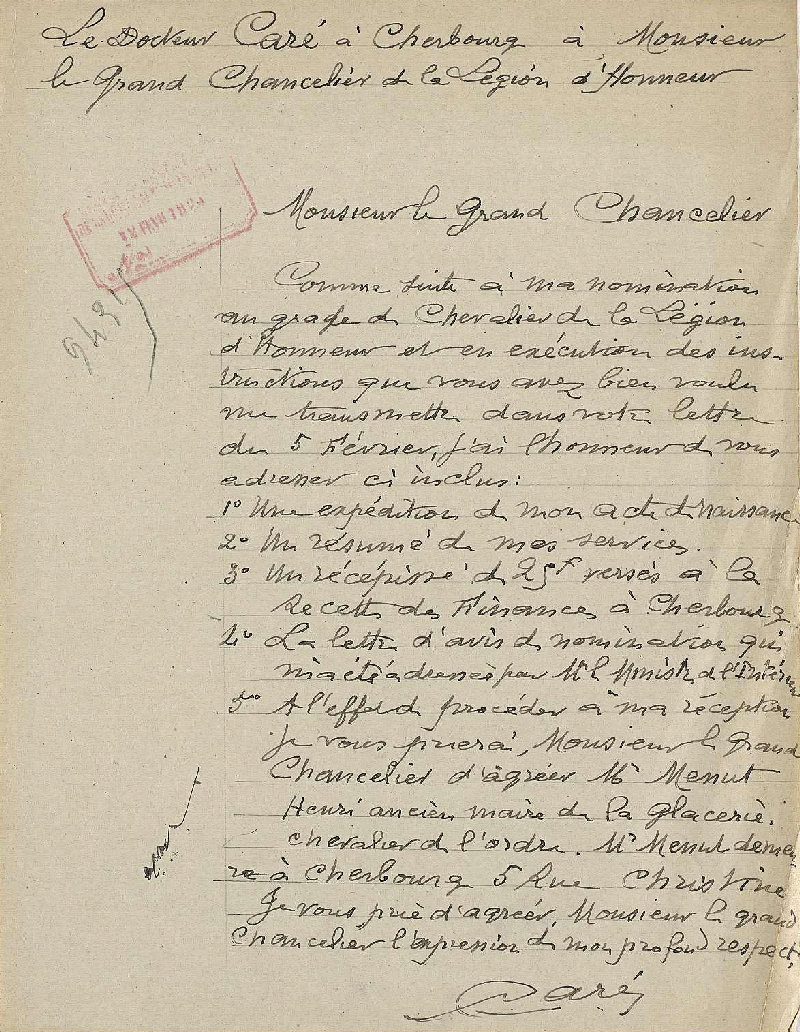 Le Docteur Caré à Cherbourg à Monsieur
le Grand Chancelier de la Légion d'Honneur
Monsieur le Grand Chancelier
Comme suite à ma nomination
au grade de Chevalier de la Légion
d'Honneur et en exécution des ins-
tructions que vous avez bien voulu
me transmettre dans votre lettre
du 5 Février, j'ai l'honneur de vous
adresser ci inclus:
1° Une expédition de mon acte de Naissance
2° Un résumé de mes services.
3° Un récépissé de 25f versés à la
Recette des Finances à Cherbourg
4° La lettre d'avis de nomination qui
m'a été adressée par Mr le Ministre de l'Intérieur
5° A l'effet de procéder à ma réception
je vous prierai, Monsieur le Grand
Chancelier d'agréer Mr Menut
Henri ancien maire de la Glacerie.
chevalier de l'ordre. Mr Menut demeu-
re à Cherbourg 5 Rue Christine
Je vous prie d'agréer, Monsieur le grand
Chancelier l'expression de mon profond respect.
Caré